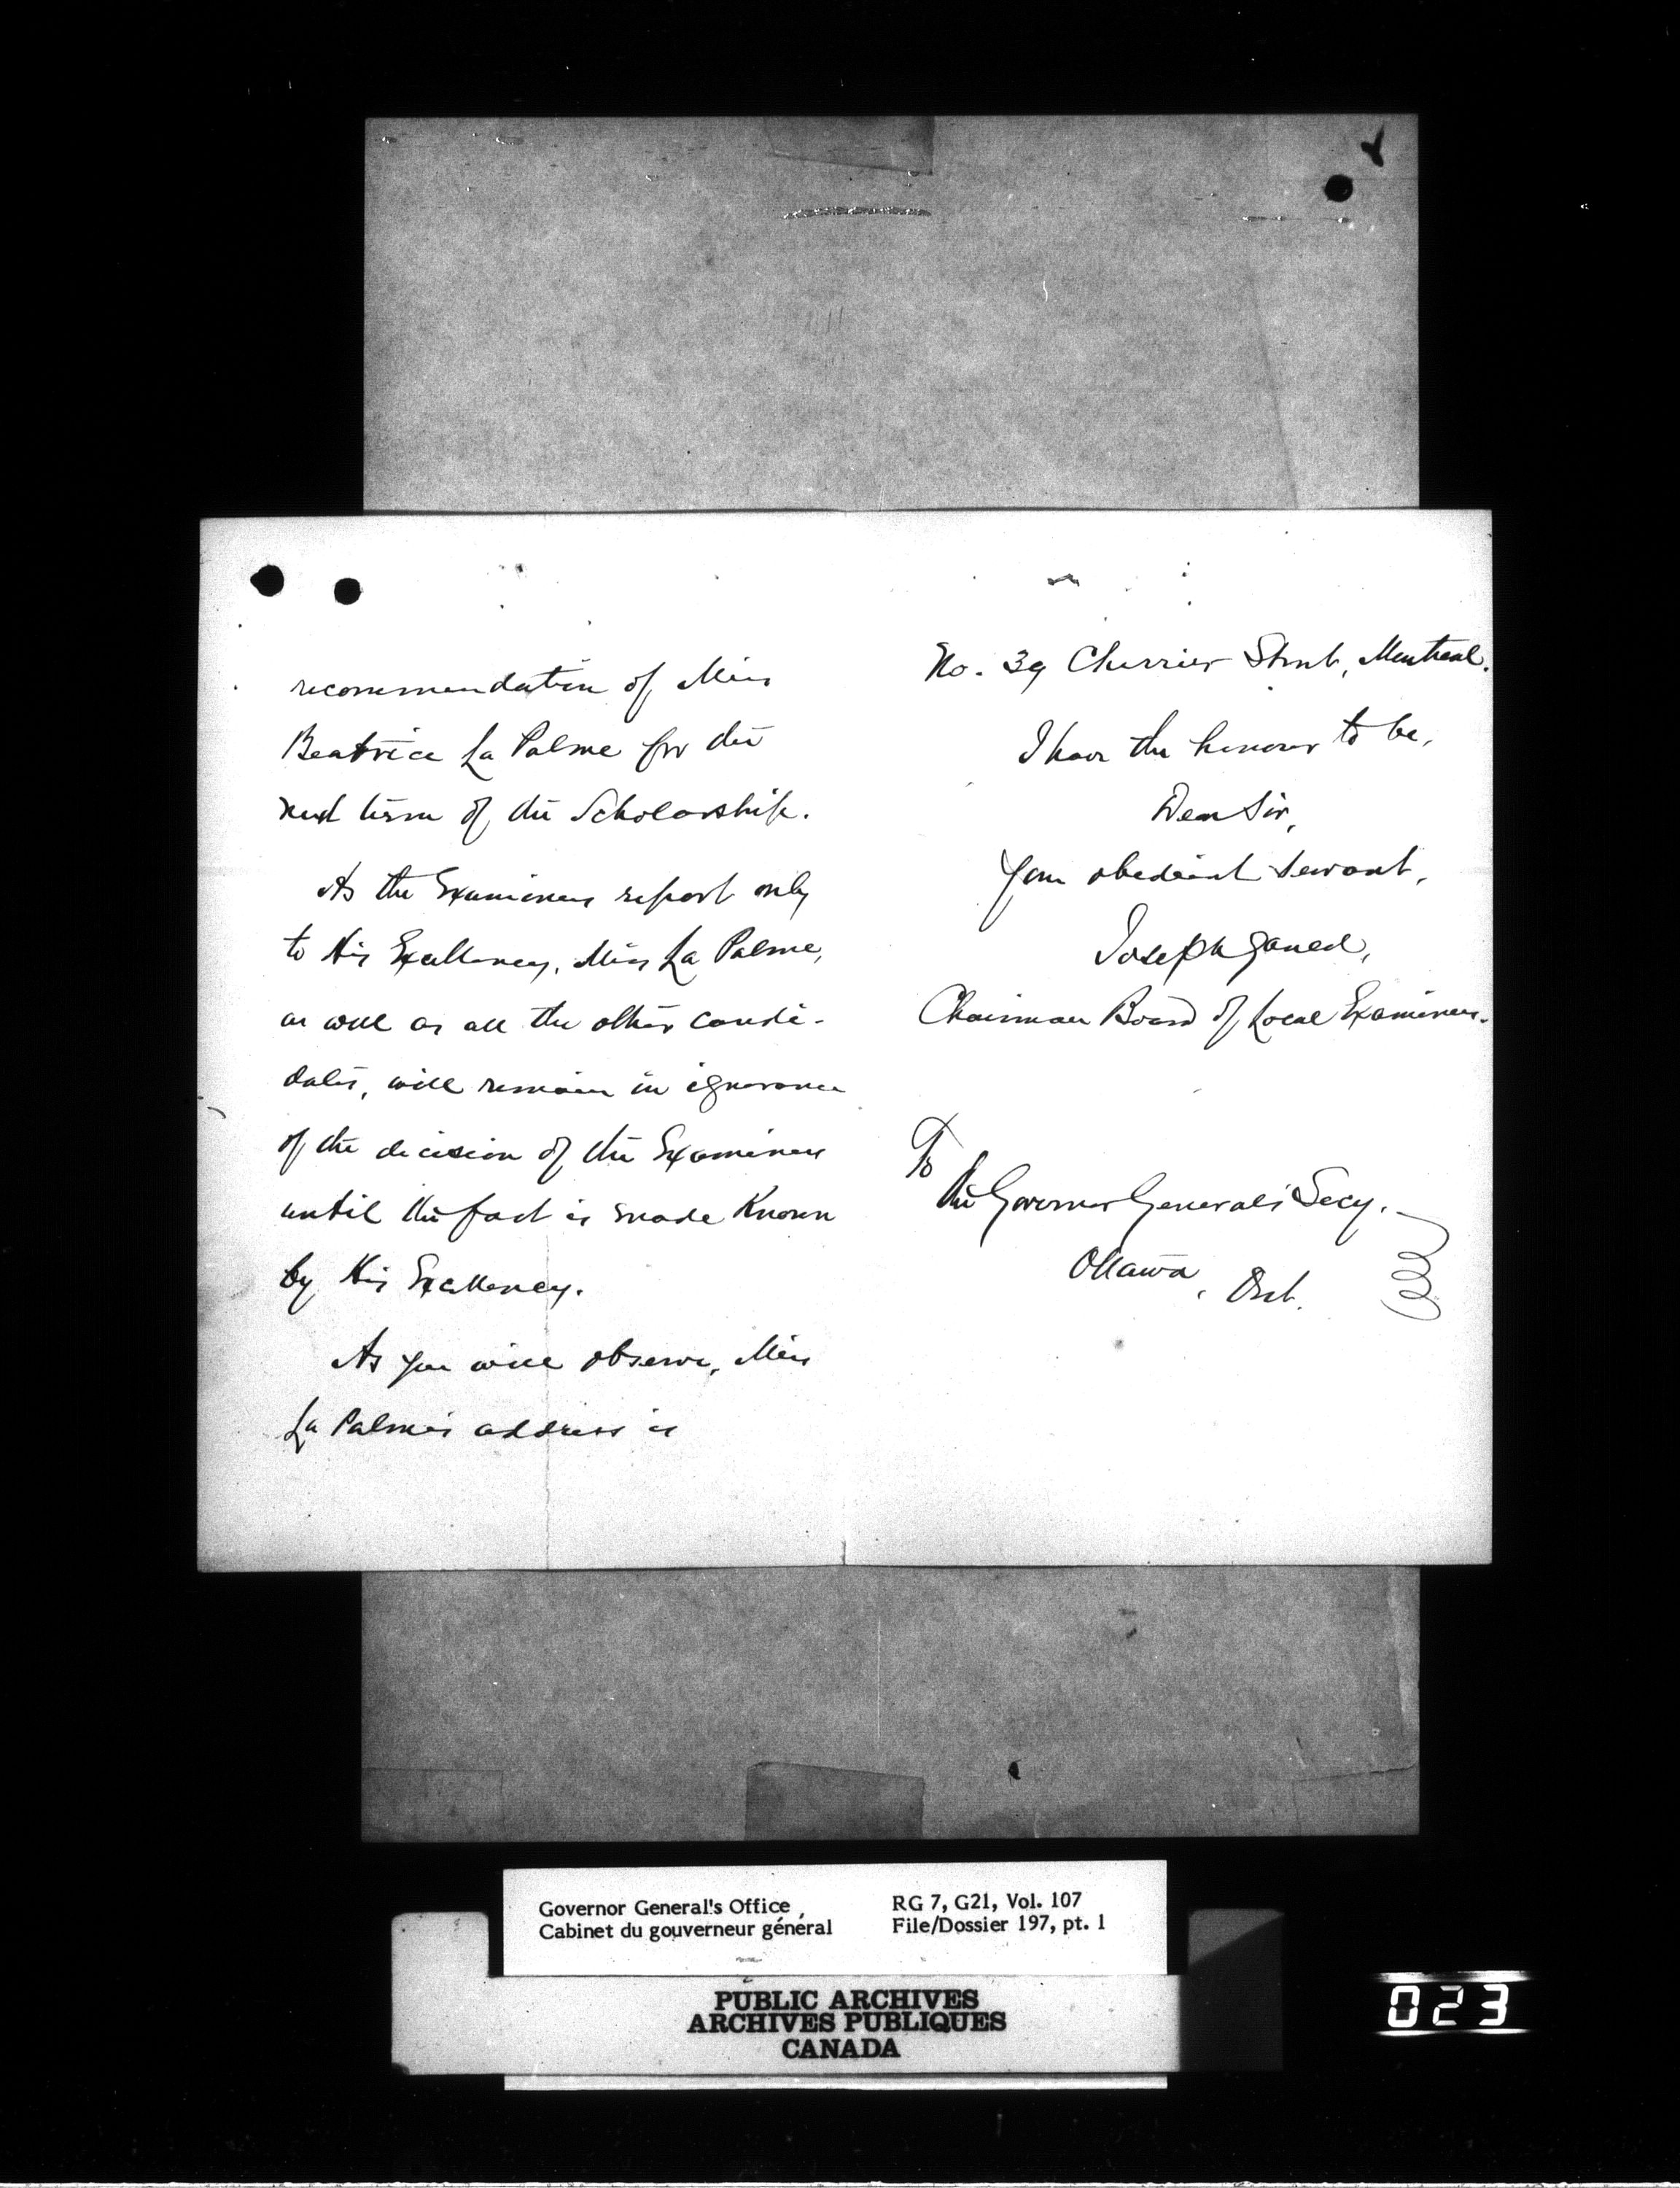 recommendation of Miss
Beatrice La Palme for the
next term of the Scholarship.
As the Examiners report only
to His Excellency, Miss La Palme,
as well as all the other candi-
dates, will remain in ignorance
of the decision of the Examiners
until the fact is made known
by His Excellency.
As you will observe, Miss
La Palme's address is
No. 39 Cherrier Street, Montreal.
I have the honour to be,
Dear Sir,
Your obedient servant,
Joseph Gould,
Chairman Board of Local Examiners.
To
The Governor General's Secy.
Ottawa, Ont.
Governor General's Office
Cabinet du gouverneur général
RG 7, G21, Vol. 107
File/Dossier 197, pt. 1
PUBLIC ARCHIVES
ARCHIVES PUBLIQUES
CANADA
023